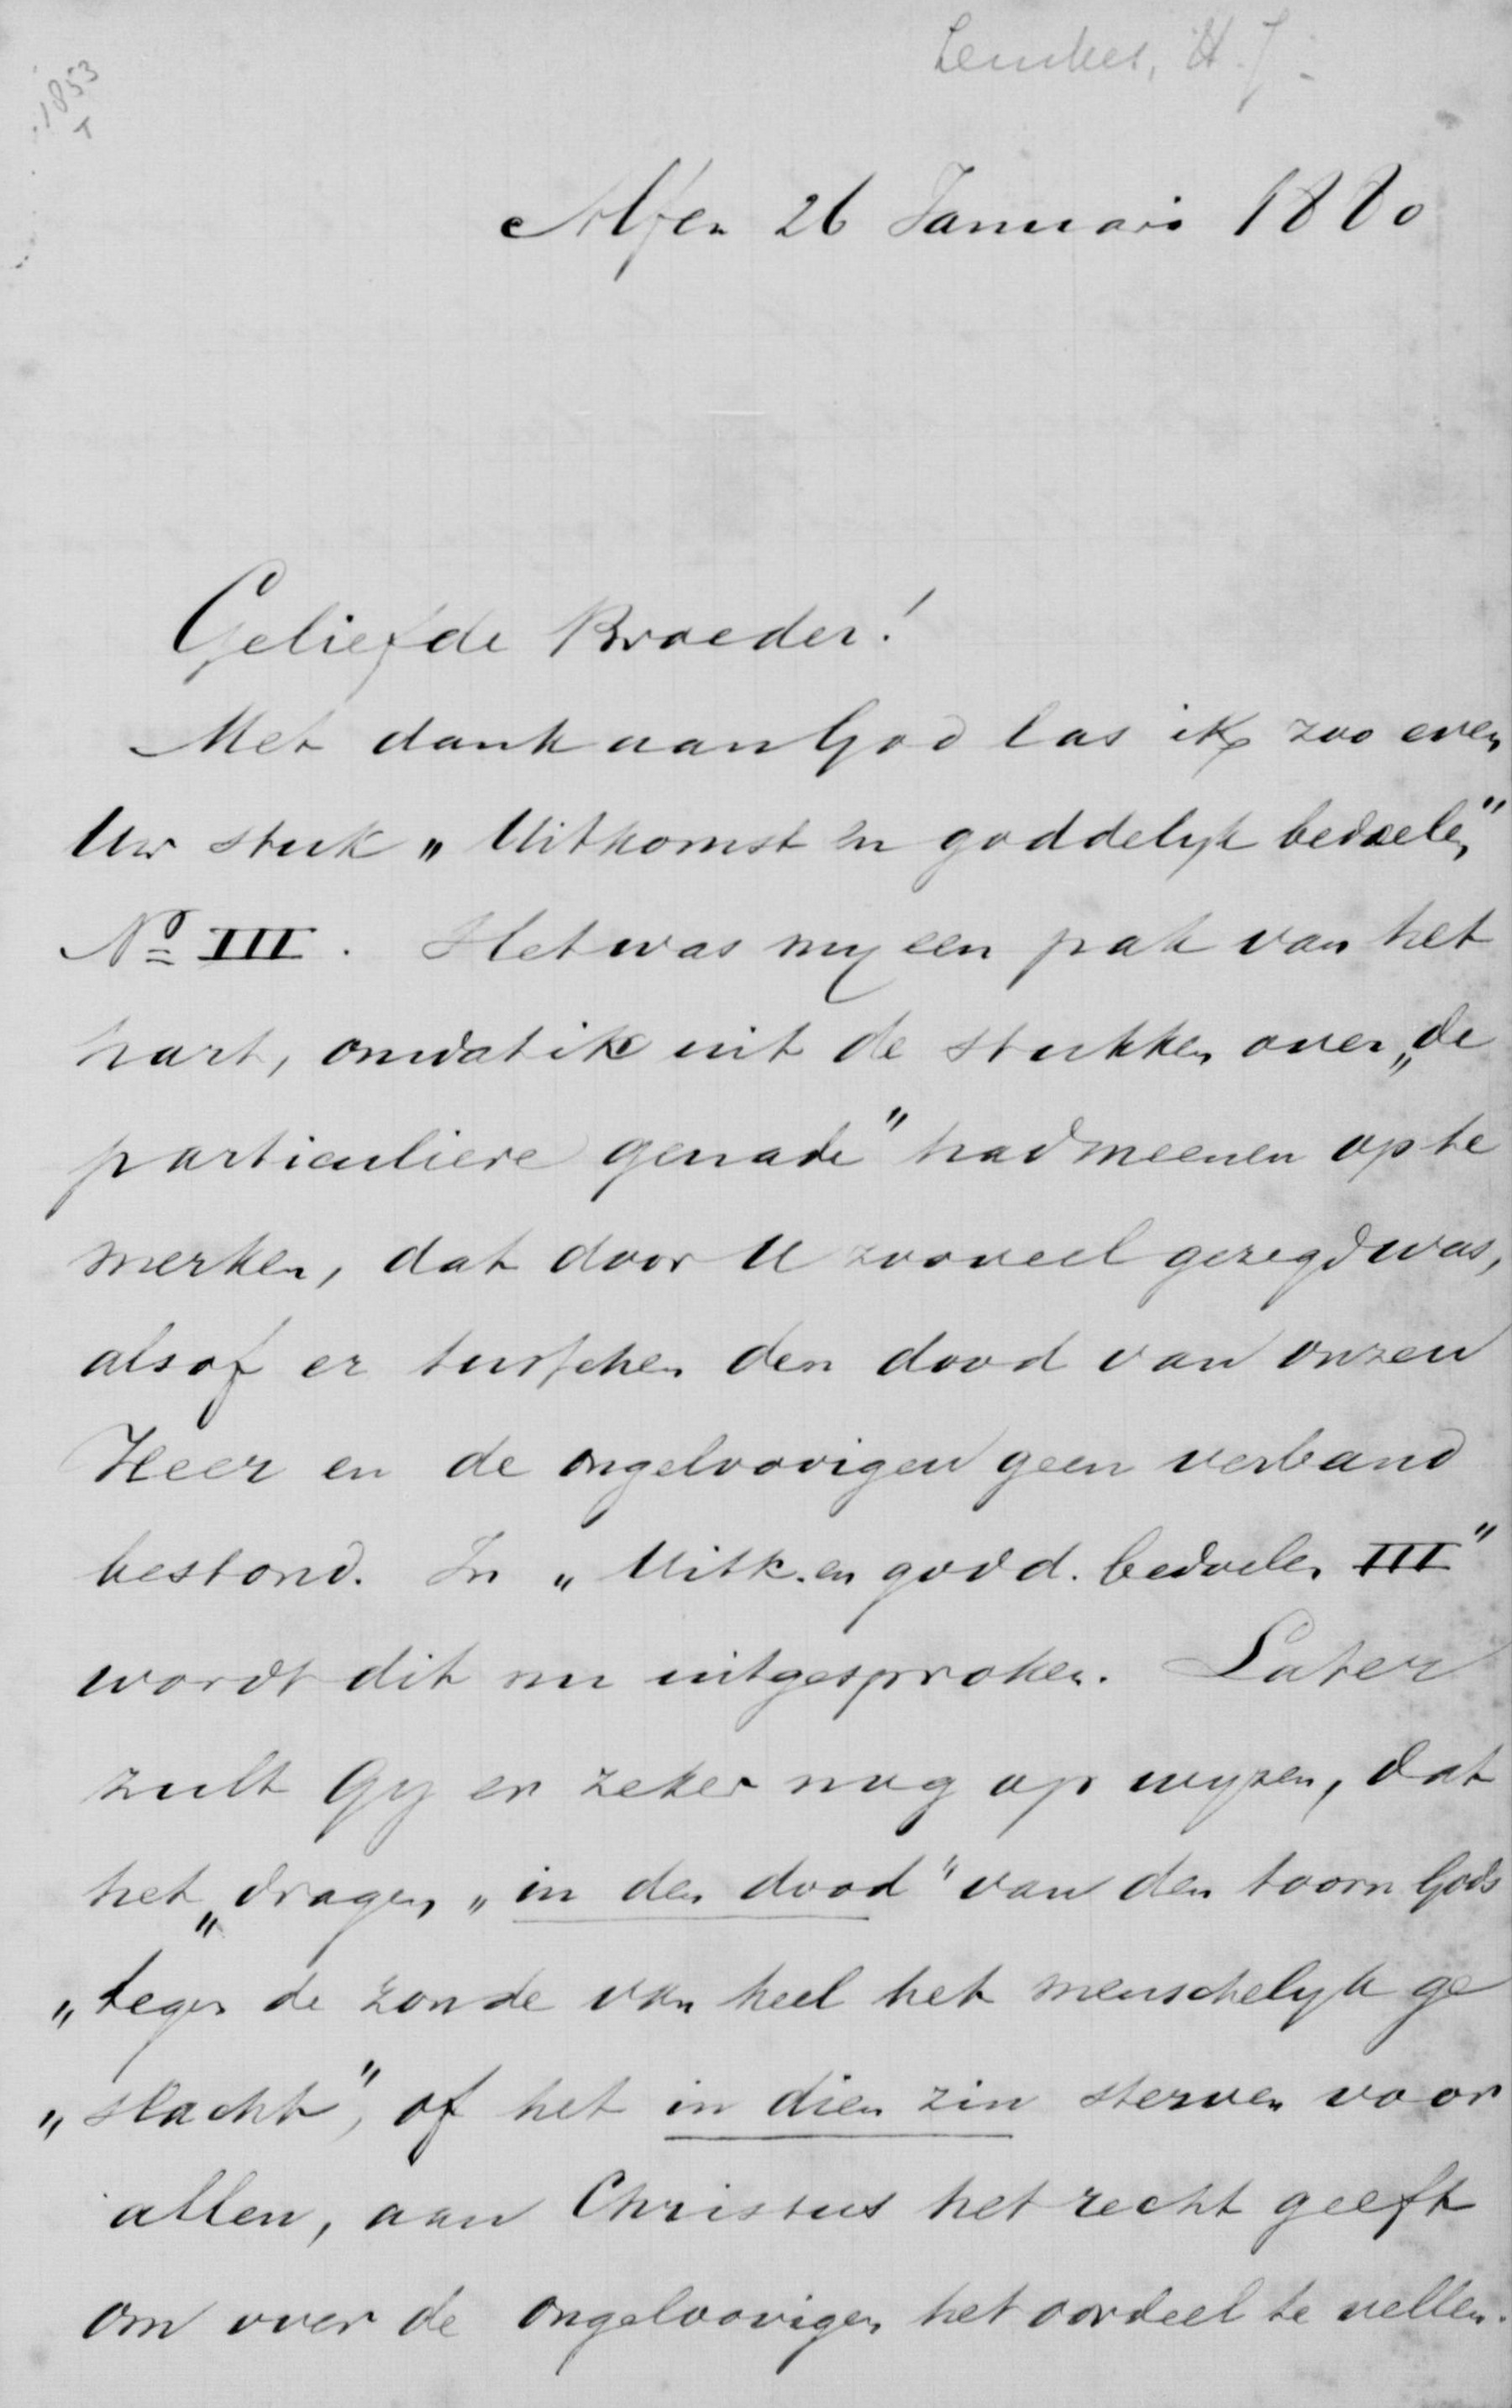 Lemkes, H. J.
1853
Alfen 26 Januari 1880
Geliefde Broeder!
Met dank aan God las ik zoo even
Uw stuk „Uitkomst en goddelyk bedoelen"
No III. Het was my een pak van het
hart, omdat ik uit de stukken over „de
particuliere genade" had meenen op te
merken, dat door U zooveel gezegd was,
alsof er tusschen den dood van onzen
Heer en de ongeloovigen geen verband
bestond. In „Uitk. en godd. bedoelen III"
wordt dit nu uitgesproken. Later
zult Gy er zeker nog op wyzen, dat
het „dragen „in den dood" van den toorn Gods
„tegen de zonde van heel het menschelyk ge
„slacht", of het in dien zin sterven voor
allen, aan Christus het recht geeft
om over de ongeloovigen het oordeel te vellen.